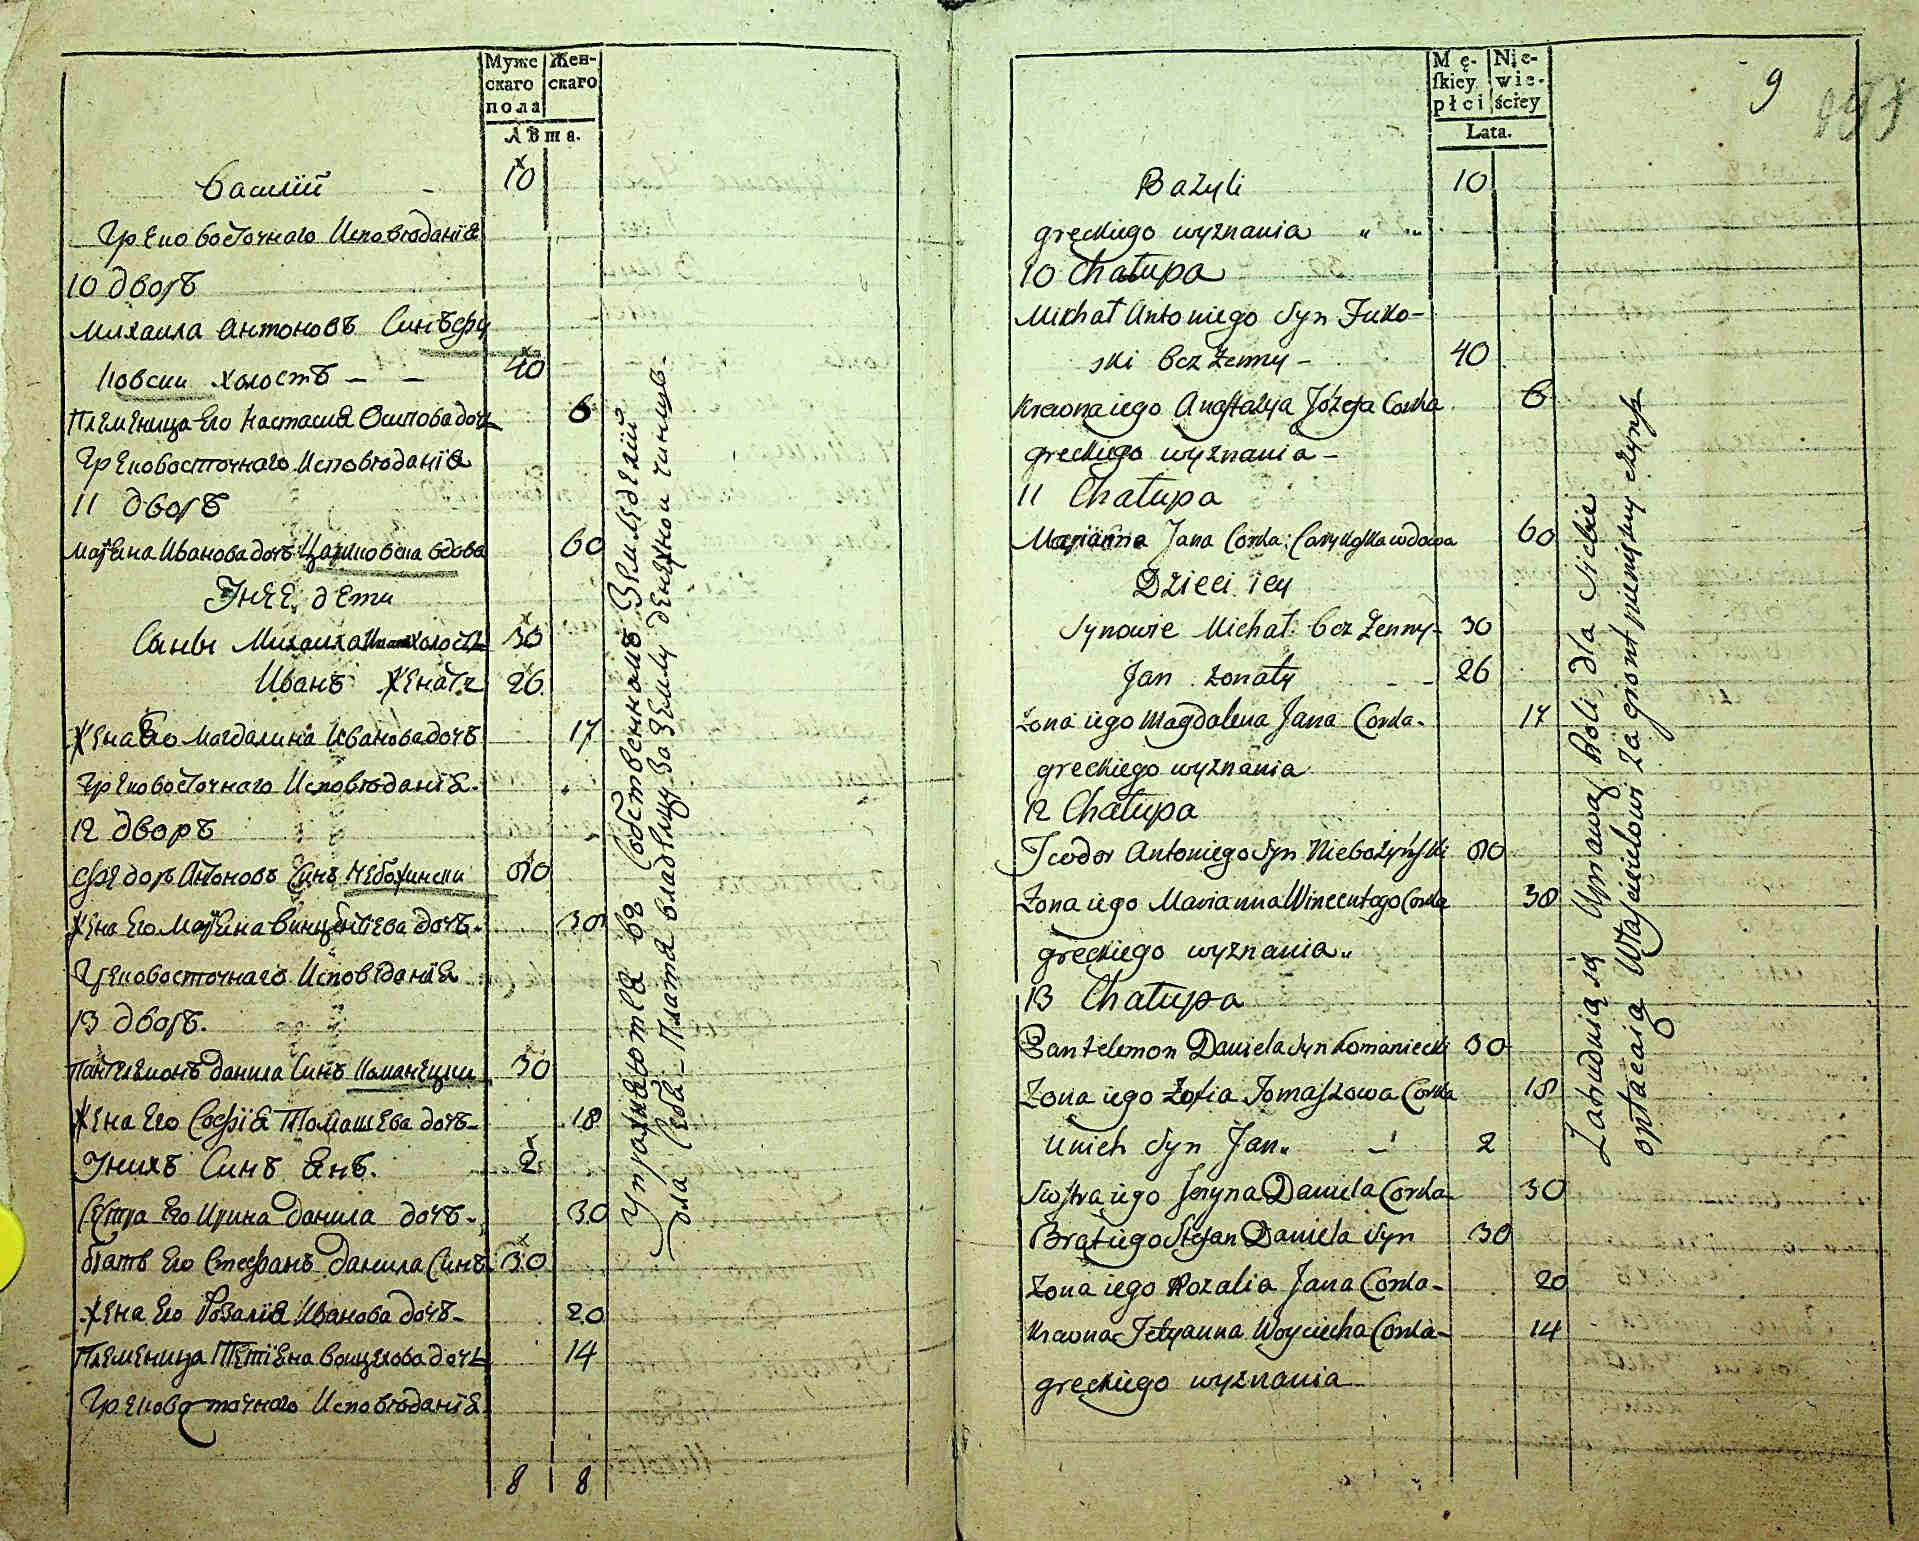 Муже Жен-
скаго скаго
пола
Лѣта.
Василій - 10
Греко восточнаго Исповѣданія
10 дворъ
Михаила Антоновъ Синъ Фу
ковски холостъ - - 40
Племеница Его Настасия Осипова доч 6
Грековосточнаго Исповѣданія
11 дворъ
Марѣна Иванова дочъ вдова 60
У нее дети
Сины Михаила холостъ 30
Иванъ Женатъ 26
Жена Его Магдалина Иванова дочъ 17
Грековосточнаго Исповѣданія.
12 дворъ
Федоръ Антоновъ Синъ Небожински 80
Жена Его Марѣна Винцентіева дочъ. 30
Грековосточнаго Исповеданія
13 дворъ.
Пантелемонъ Данила Синъ Команецки 30
Жена Его Софія Томашева дочъ- 18
У нихъ Синъ Янъ. 2
Сестра Его Ирина Данила дочъ- 30
братъ Его Стефанъ Данила Синъ 30
Жена Его Розалія Иванова дочъ- 20
Племеница Тетіена Войцехова дочъ 14
Грековосточнаго Исповѣданія.
8 8
Упражняютца въ Собственномъ Земледелій
для Себя - Платя владелцу за Землю денежной чиншъ.
Mę- Nie-
skiey wie-
płci ściey
Lata.
9
Bazyli 10
greckiego wyznania " "
10 Chałupa
Michał Antoniego Syn Fuko-
ski bez Zenny - 40
Krewna iego Anastazya Józefa Corka 6
greckiego wyznania -
11 Chałupa
Marianna Jana Corka wdowa 60
Dzieci iey
Synowie Michał bez Zenny- 30
Jan zonaty - - 26
Zona iego Magdalena Jana Corka- 17
greckiego wyznania
12 Chałupa
Teodor Antoniego Syn Niebożyński 80
Zona iego Marianna Wincentego Corka 30
greckiego wyznania "
13 Chałupa
Pantelemon Daniela Syn Komaniecki 30
Zona iego Zofia Tomaszowa Corka 18
Unich Syn Jan " - 2
Siostra iego Jeryna Daniela Corka 30
Brat iego Stefan Daniela Syn 30
Zona iego Rozalia Jana Corka- 20
Krewna Tetyanna Woyciecha Corka- 14
greckiego wyznania
Zatrudnią się Uprawą Roli, dla Siebie
opłacaią Właścicielowi za gront pieniężny czynsz